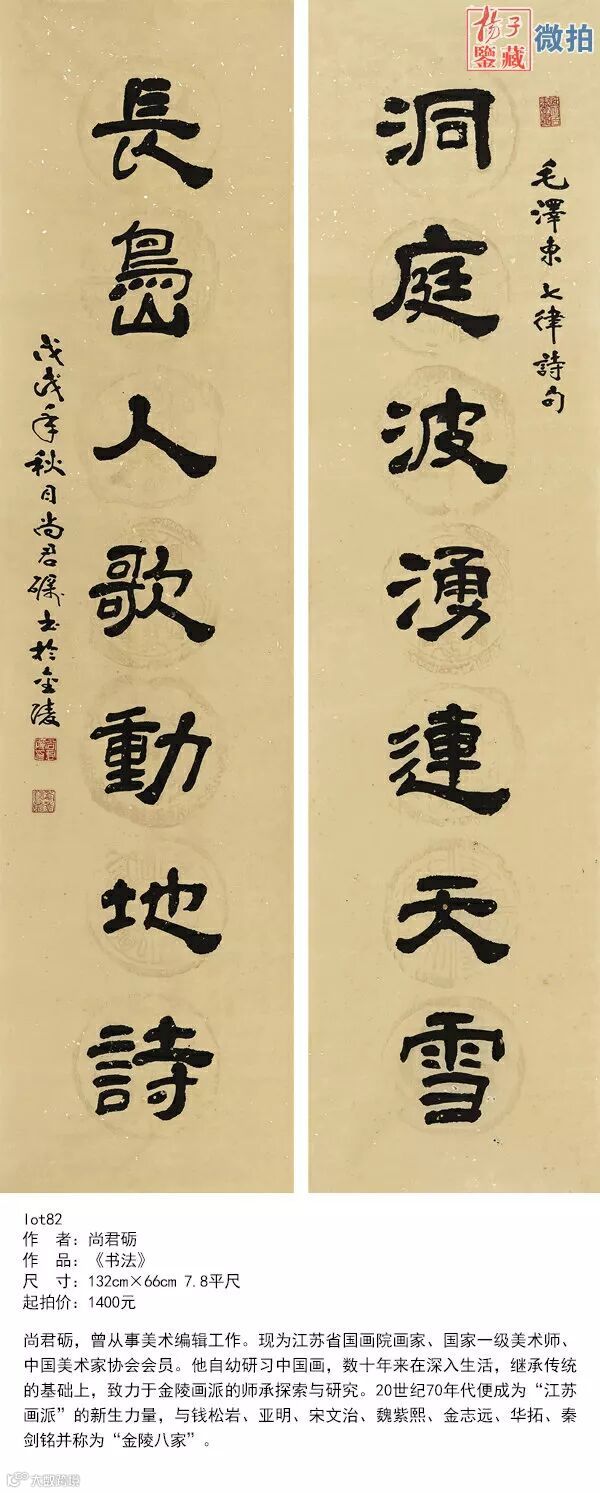 楊子
鑒藏
微拍
毛澤東七律詩句
洞庭波湧連天雪
長島人歌動地詩
戊戌年秋月尚君礪书於金陵
lot82
作 者：尚君砺
作 品：《书法》
尺 寸：132cm×66cm 7.8平尺
起拍价：1400元
尚君砺，曾从事美术编辑工作。现为江苏省国画院画家、国家一级美术师、
中国美术家协会会员。他自幼研习中国画，数十年来在深入生活，继承传统
的基础上，致力于金陵画派的师承探索与研究。20世纪70年代便成为“江苏
画派”的新生力量，与钱松岩、亚明、宋文治、魏紫熙、金志远、华拓、秦
剑铭并称为“金陵八家”。
大数跨境